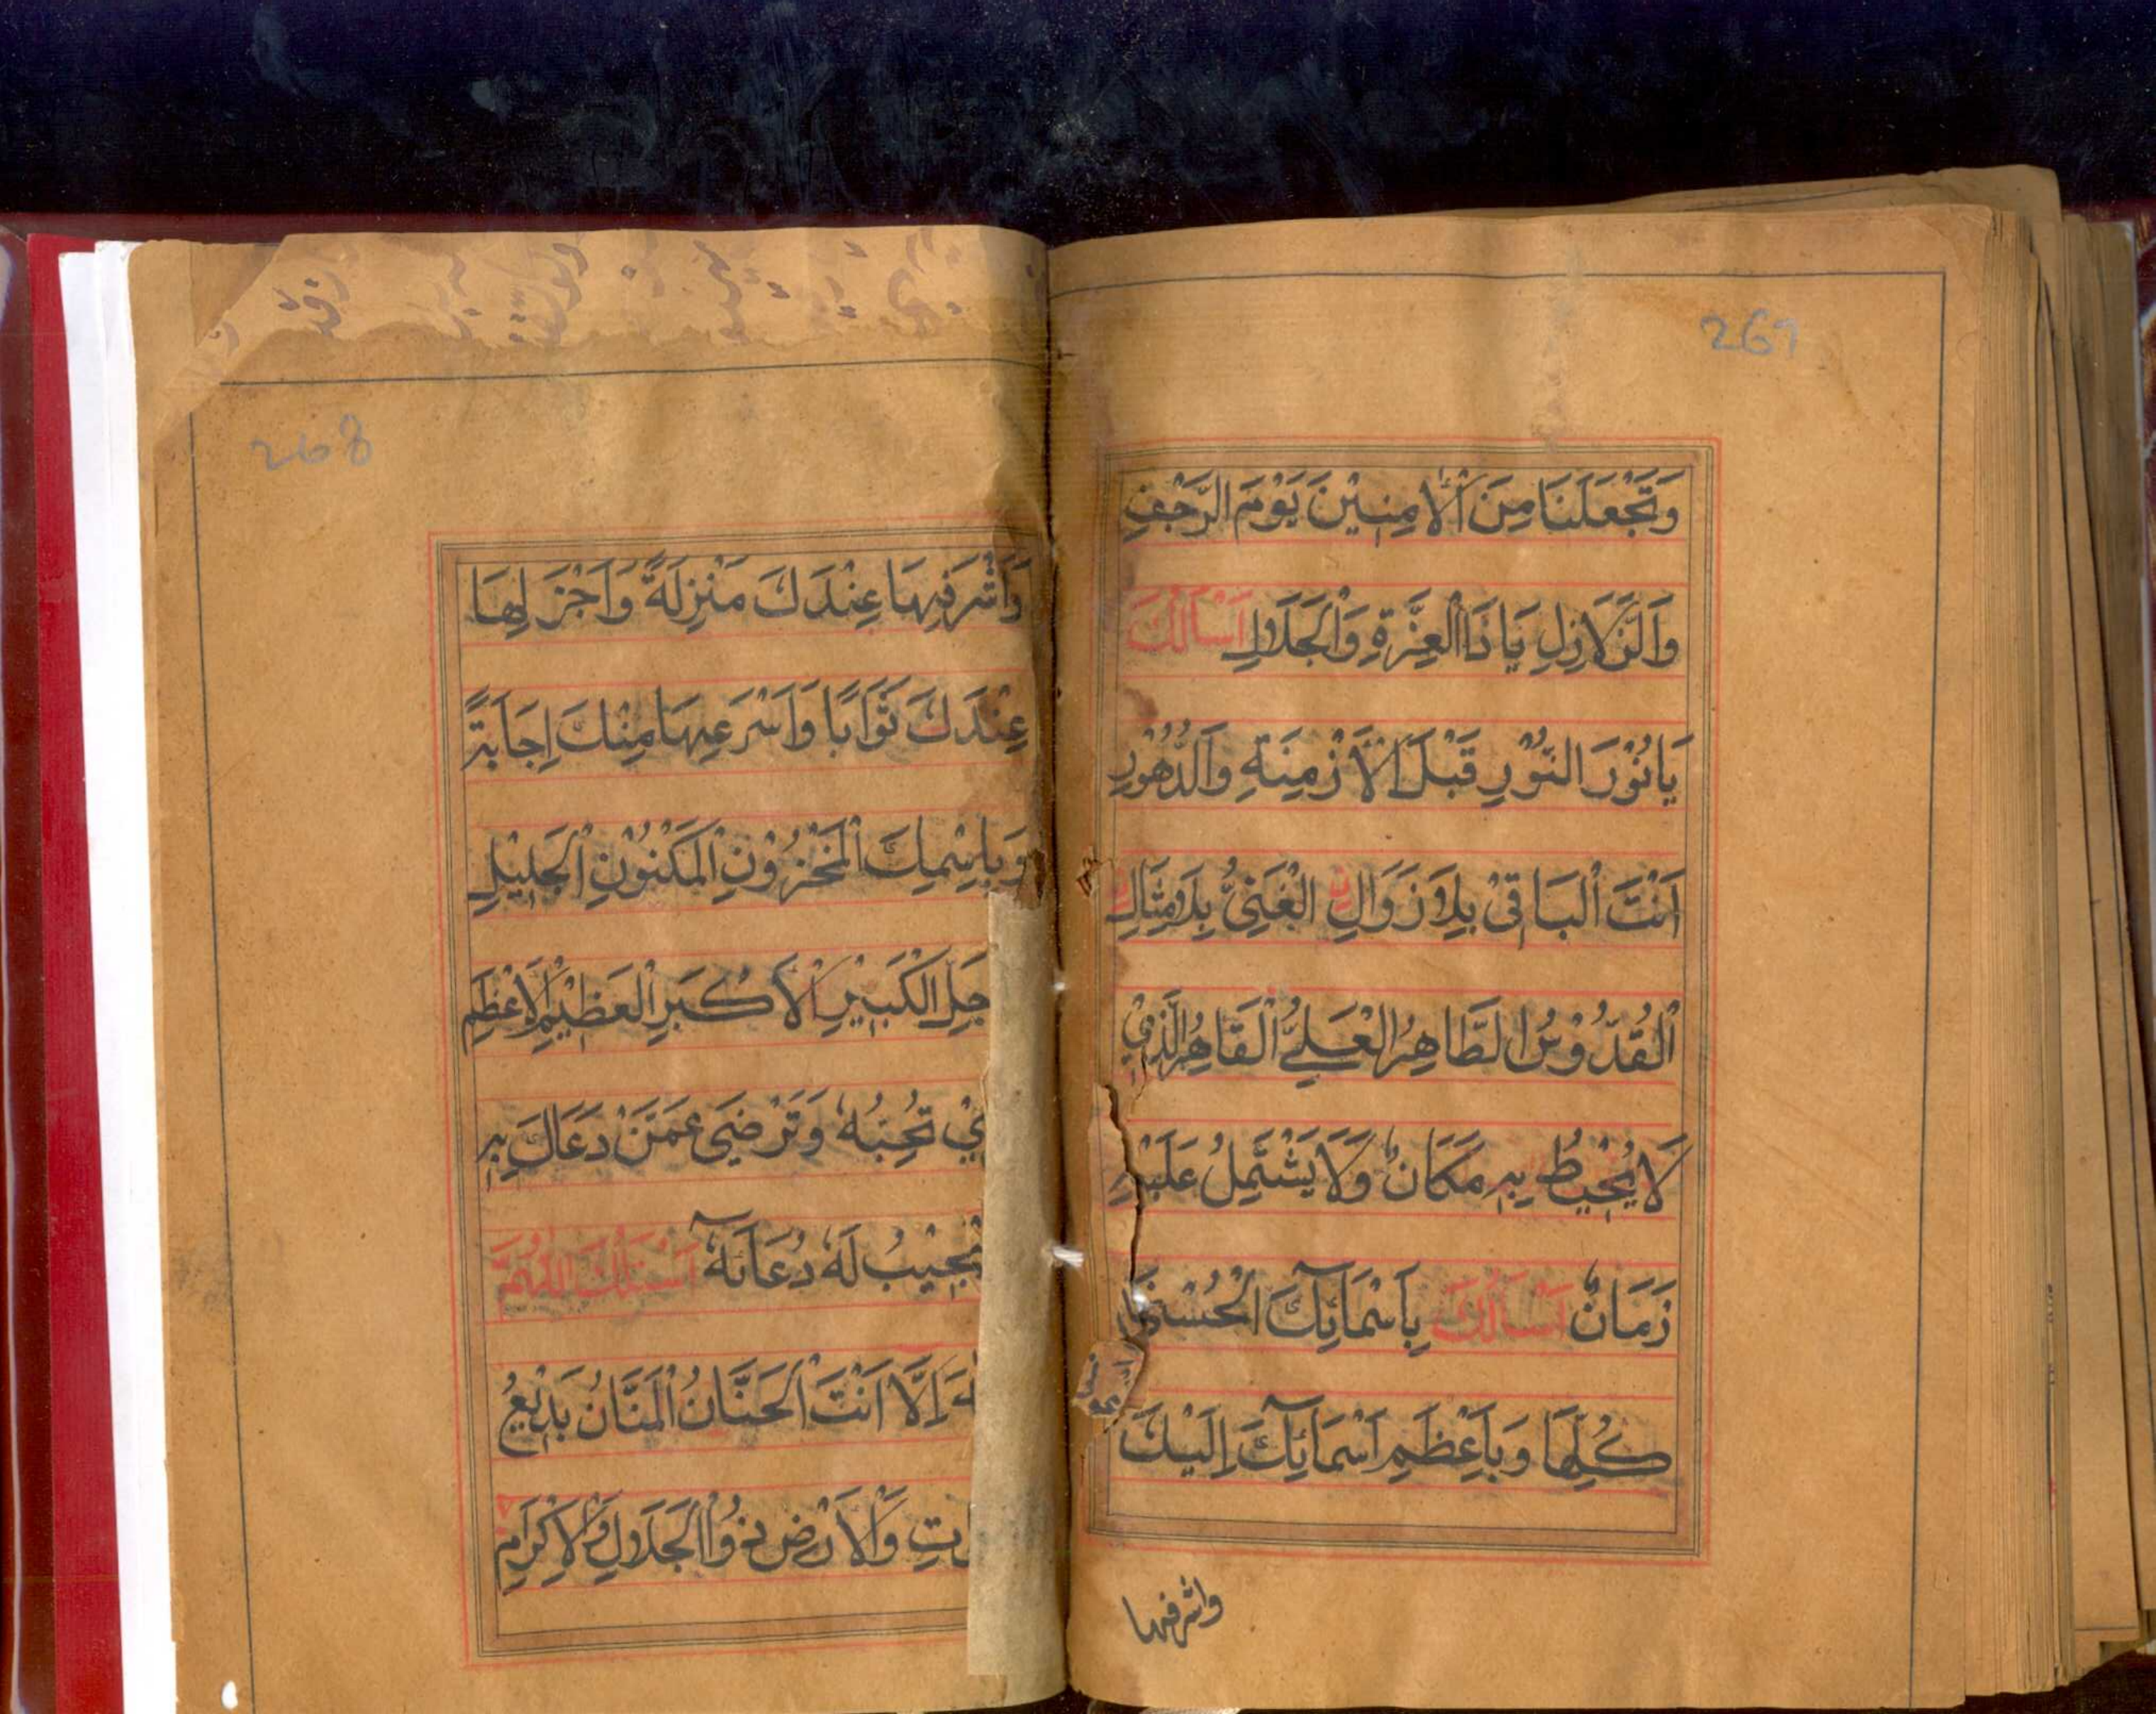 267
وَتَجْعَلَنَا مِنَ الْاٰمِنِيْنَ يَوْمَ الرَّجْفِ
وَالزَّلَازِلِ يَا ذَا الْعِزَّةِ وَالْجَلَالِ اَسْاَلُكَ
يَا نُوْرَ النُّوْرِ قَبْلَ الْاَزْمِنَةِ وَالدُّهُوْرِ
اَنْتَ الْبَاقِيْ بِلَا زَوَالٍ الْغَنِيُّ بِلَا مِثَالٍ
الْقُدُّوْسُ الطَّاهِرُ الْعَلِيُّ الْقَاهِرُ الَّذِيْ
لَا يُحِيْطُ بِهٖ مَكَانٌ وَلَا يَشْتَمِلُ عَلَيْهِ
زَمَانٌ اَسْاَلُكَ بِاَسْمَآئِكَ الْحُسْنٰى
كُلِّهَا وَبِاَعْظَمِ اَسْمَآئِكَ اِلَيْكَ
واشرفها
268
وَاَشْرَفِهَا عِنْدَكَ مَنْزِلَةً وَاَجْزَلِهَا
عِنْدَكَ ثَوَابًا وَاَسْرَعِهَا مِنْكَ اِجَابَةً
وَبِاِسْمِكَ الْمَخْزُوْنِ الْمَكْنُوْنِ الْجَلِيْلِ
جَلِّ الْكَبِيْرِ الْاَكْبَرِ الْعَظِيْمِ الْاَعْظَمِ
يْ تُحِبُّهٗ وَتَرْضٰى عَمَّنْ دَعَاكَ بِهٖ
تَجِيْبُ لَهٗ دُعَآئَهٗ اَسْئَلُكَ اللّٰهُمَّ
هَ اِلَّا اَنْتَ الْحَنَّانُ الْمَنَّانُ بَدِيْعُ
تِ وَالْاَرْضِ ذُوالْجَلَالِ وَالْاِكْرَامِ